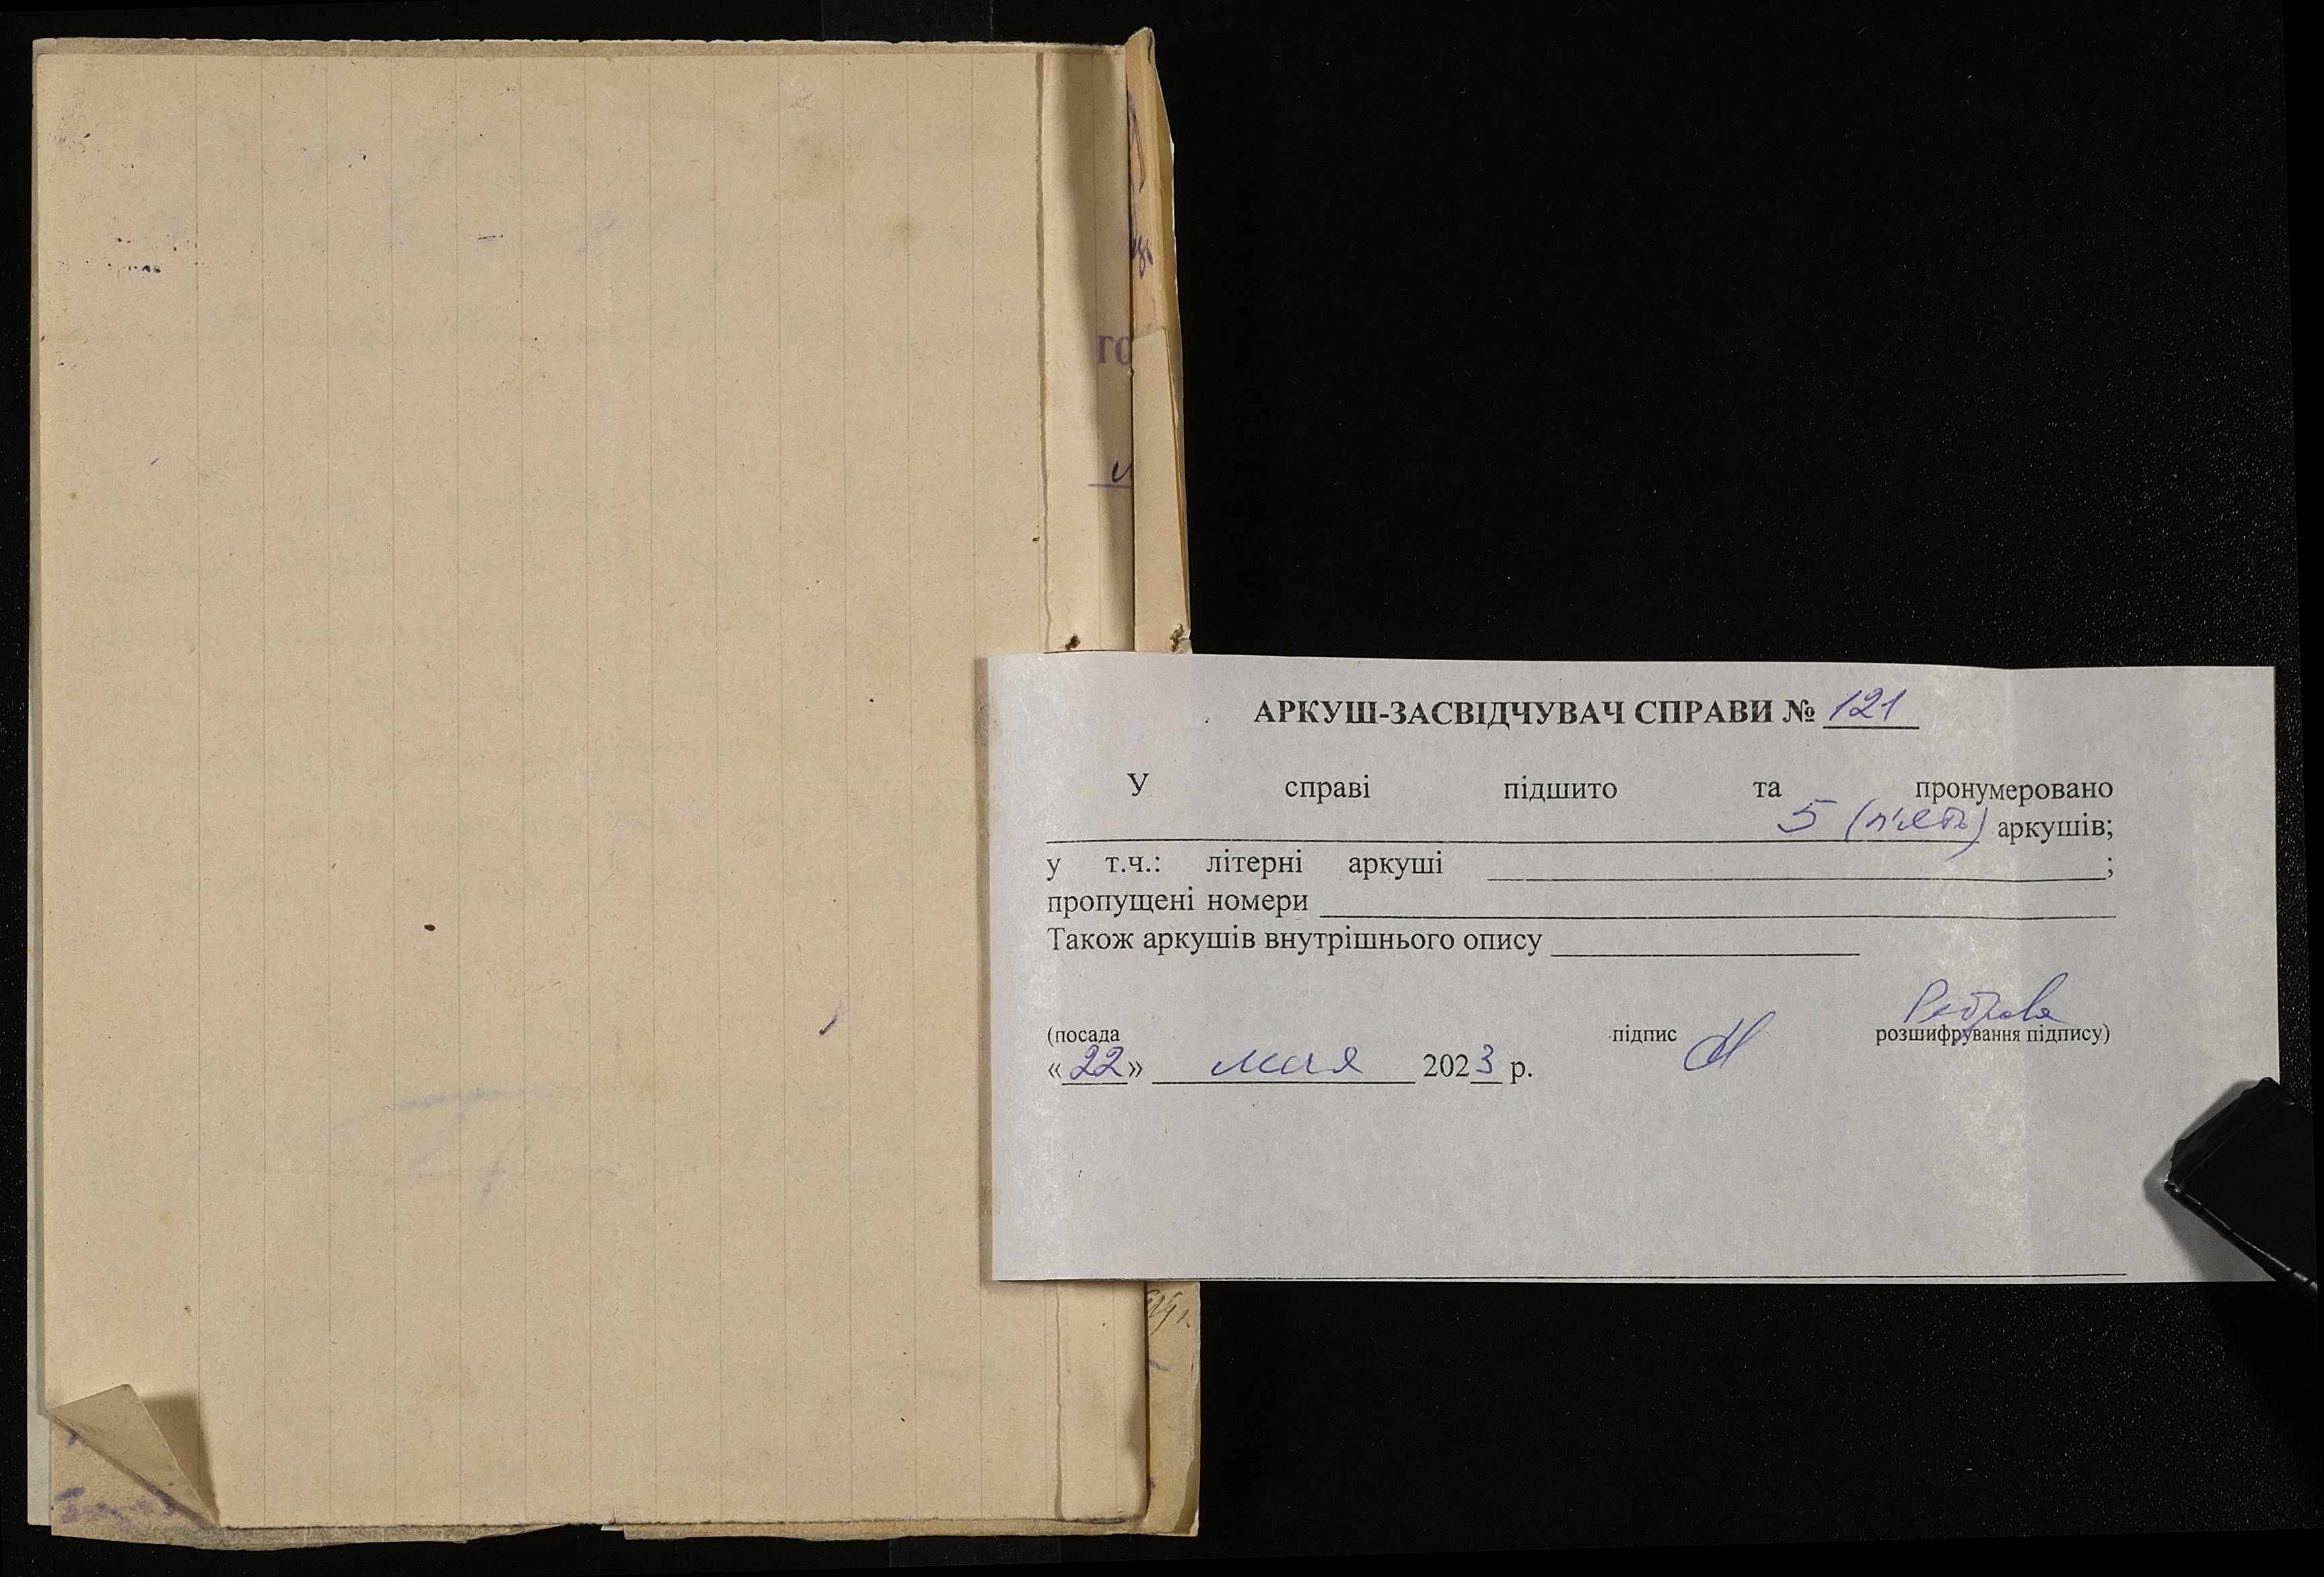 АРКУШ-ЗАСВІДЧУВАЧ СПРАВИ № 121
У справі підшито та пронумеровано
5 (п'ять) аркушів;
у т.ч.: літерні аркуші ;
пропущені номери
Також аркушів внутрішнього опису
(посада підпис розшифрування підпису)
«22» мая 2023 р.